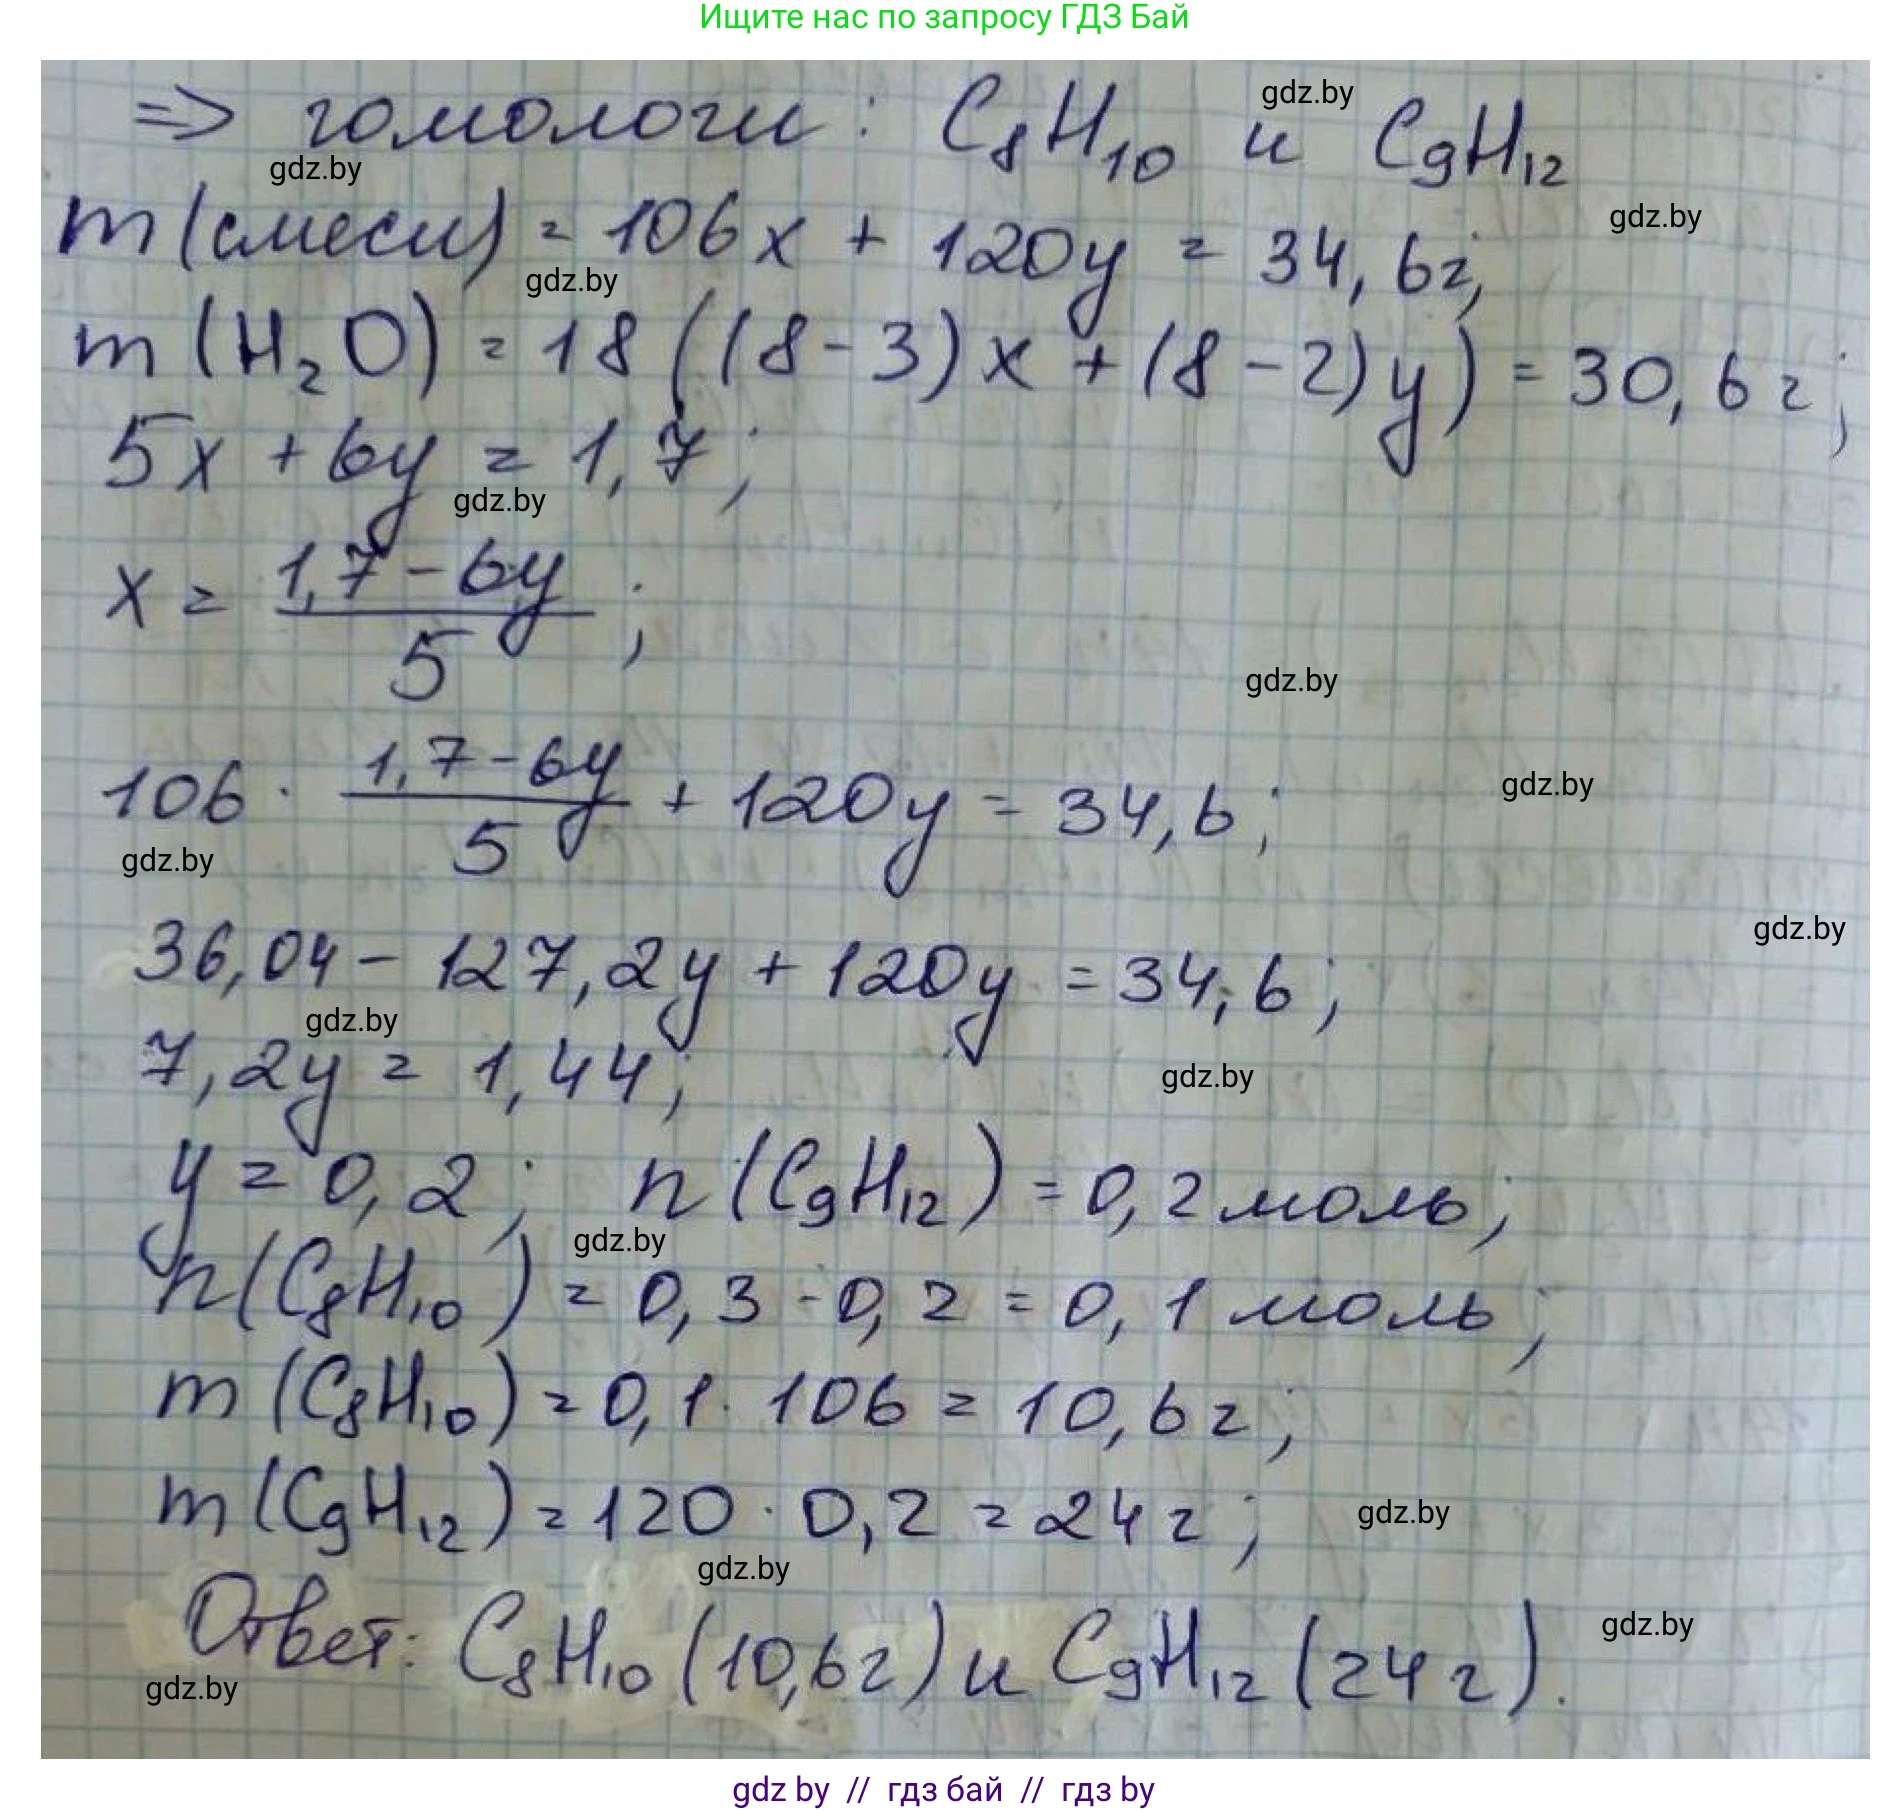 Ищите нас по запросу ГДЗ Бай
=> гомологи: C₈H₁₀ и C₉H₁₂
gdz.by
gdz.by
m(смеси) = 106x + 120y = 34,6г;
gdz.by
gdz.by
m(H₂O) = 18((8-3)x + (8-2)y) = 30,6г;
5x + 6y = 1,7;
gdz.by
x = (1,7-6y)/5;
gdz.by
106 · (1,7-6y)/5 + 120y = 34,6;
gdz.by
gdz.by
gdz.by
36,04 - 127,2y + 120y = 34,6;
gdz.by
7,2y = 1,44;
gdz.by
y = 0,2; n(C₉H₁₂) = 0,2 моль;
gdz.by
n(C₈H₁₀) = 0,3 - 0,2 = 0,1 моль;
m(C₈H₁₀) = 0,1 · 106 = 10,6г;
m(C₉H₁₂) = 120 · 0,2 = 24г;
gdz.by
gdz.by
Ответ: C₈H₁₀ (10,6г) и C₉H₁₂ (24г).
gdz.by
gdz.by
gdz by // гдз бай // гдз by